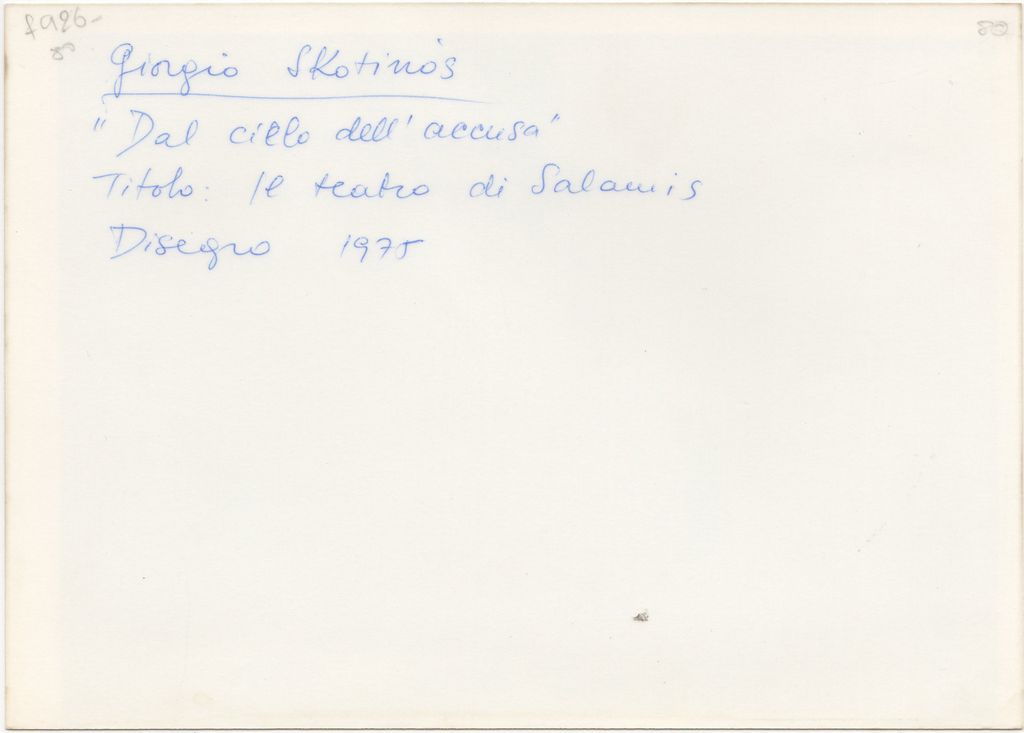 fa26-
80
80
Giorgio Skotinós
"Dal ciclo dell'accusa"
Titolo: Il teatro di Salamis
Disegno 1975